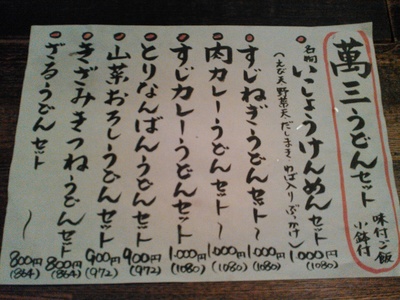 萬三うどんセット
味付ご飯
小鉢付
名物 いっしょうけんめんセット 1.000円(1080)
(えび天、野菜天、だしまき、わば入りぶっかけ)
すじねぎうどんセット〜 1.000円(1080)
肉カレーうどんセット〜 1.000円(1080)
すじカレーうどんセット 1.000円(1080)
とりなんばんうどんセット 900円(972)
山菜おろしうどんセット 900円(972)
きざみきつねうどんセット 800円(864)
ざるうどんセット 〜 800円(864)